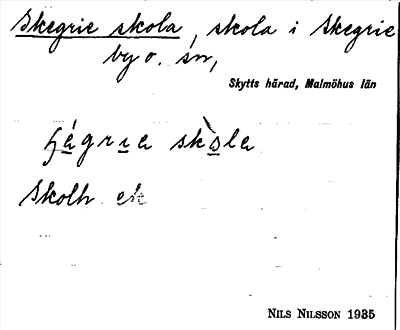 Skegrie skola, skola i Skegrie
by o. sn,
Skytts härad, Malmöhus län
skola
Skolh ek
NILS NILSSON 1935